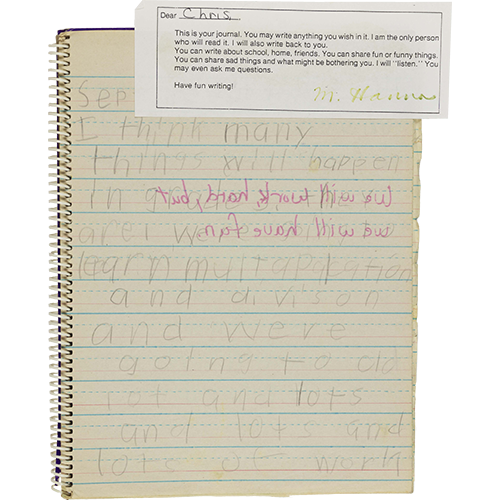 Dear Chris
This is your journal. You may write anything you wish in it. I am the only person
who will read it. I will also write back to you.
You can write about school, home, friends. You can share fun or funny things.
You can share sad things and what might be bothering you. I will "listen." You
may even ask me questions.
Have fun writing!
Mr. Hanna
Sep
I think many
things will happen
in
we will work hard, but
are
we will have fun
learn multaplkation
and divison
and were
going to do
lot and lots
and lots and
lots of work